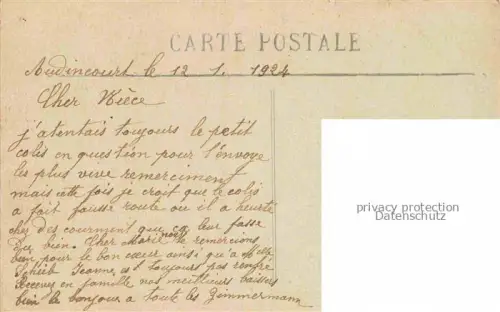 CARTE POSTALE
Audincourt le 12 1. 1924
Cher Nièce
j'atentais toujours le petit
colis en question pour l'envoye
les plus vive remerciment
mais cette fois je croit que le colis
a fait fausse route ou il a heurté
chez des courment que ça leur fasse
du bien. Cher Marie nous te remercions
bien pour le bon cœur ainsi qu'a Melle
Scheib Jeanne as toujours pas rentre
Recevez en famille nos meilleurs baisers
bien le bonjour a toute les Zimmermann
privacy protection
Datenschutz